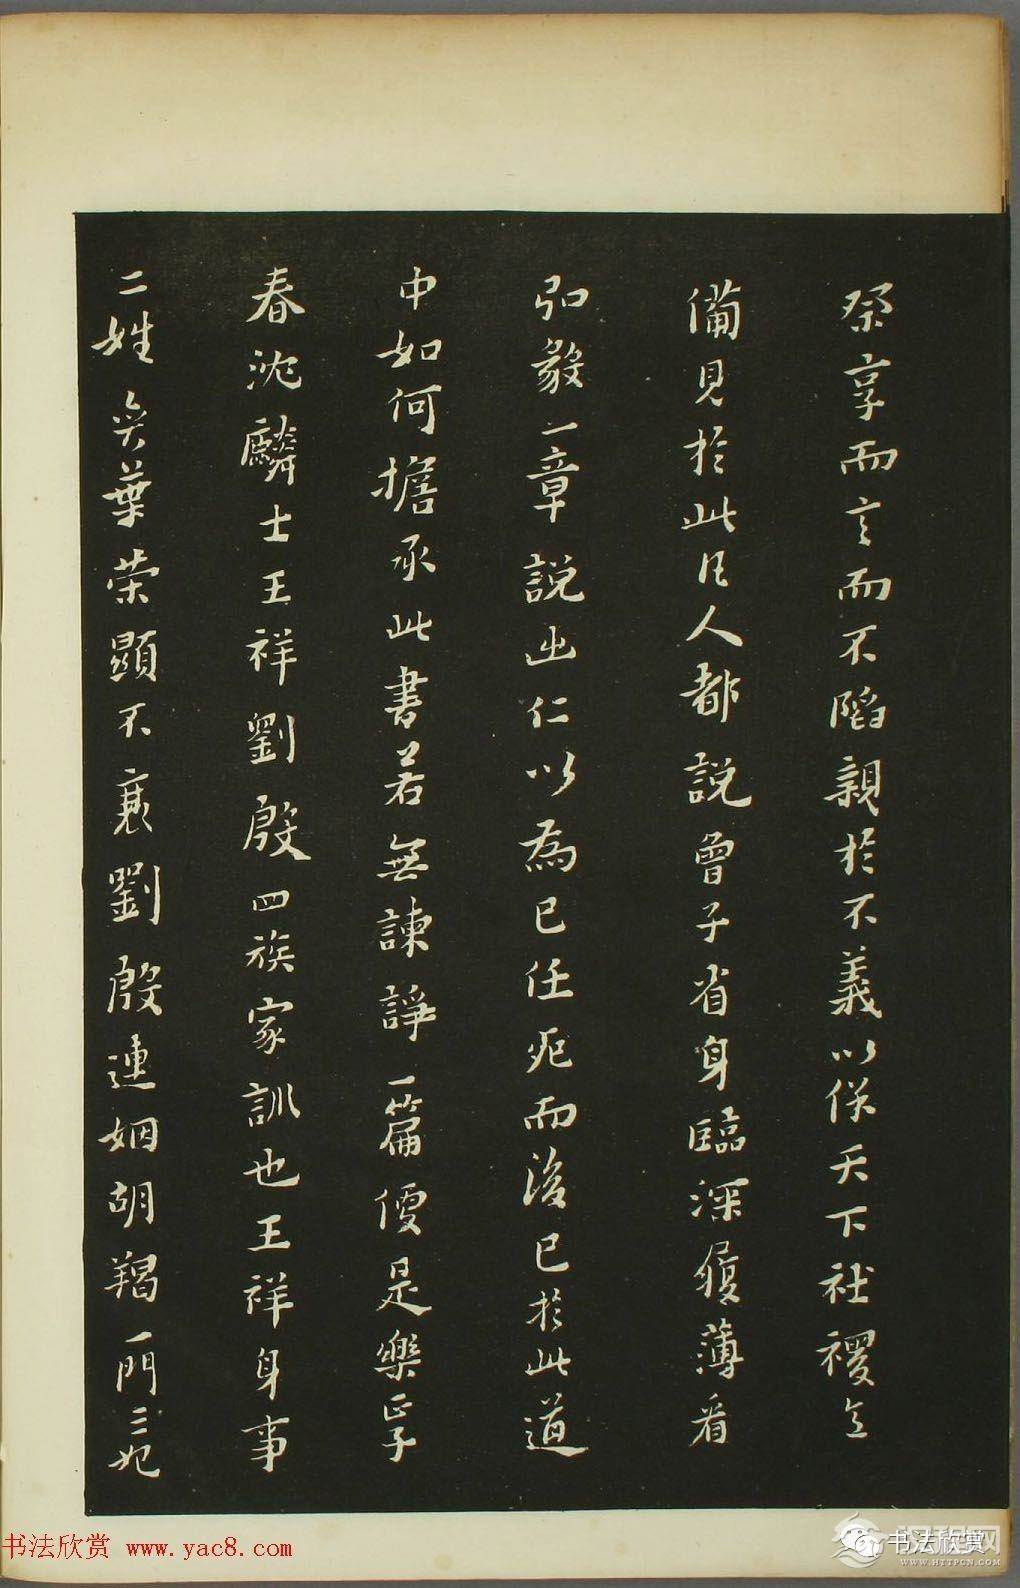 祭享而言而不陷親於不義以保天下社稷之
備見於此凡人都說曾子省身臨深履薄看
弘毅一章說出仁以為已任死而後已於此道
中如何擔承此書若無諫諍一篇便是樂正子
春沈麟士王祥劉殷四族家訓也王祥身事
二姓奕葉榮顯不衰劉殷連姻胡羯一門三妃
书法欣赏 www.yac8.com
书法欣赏
WWW.HTTPCN.COM